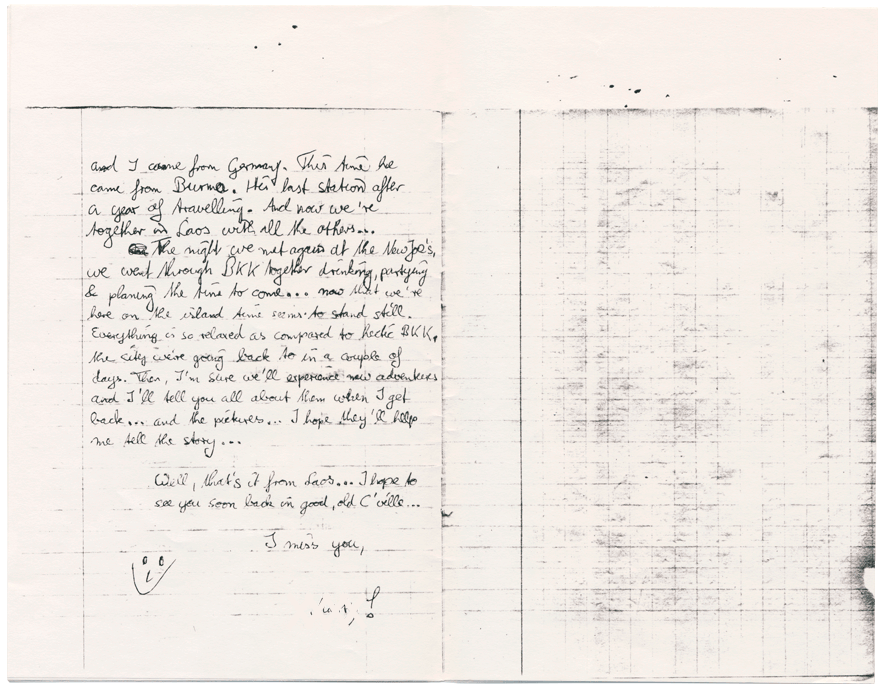 and I came from Germany. This time he
came from Burma. His last station after
a year of travelling. And now we're
together in Laos with all the others...
The night we met again at the New Joe's,
we went through BKK together drinking, partying
& planing the time to come... now that we're
here on the island time seems to stand still.
Everything is so relaxed as compared to hectic BKK,
the city we're going back to in a couple of
days. Then, I'm sure we'll experience new adventures
and I'll tell you all about them when I get
back... and the pictures... I hope they'll help
me tell the story...
Well, that's it from Laos... I hope to
see you soon back in good, old C'ville...
I miss you,